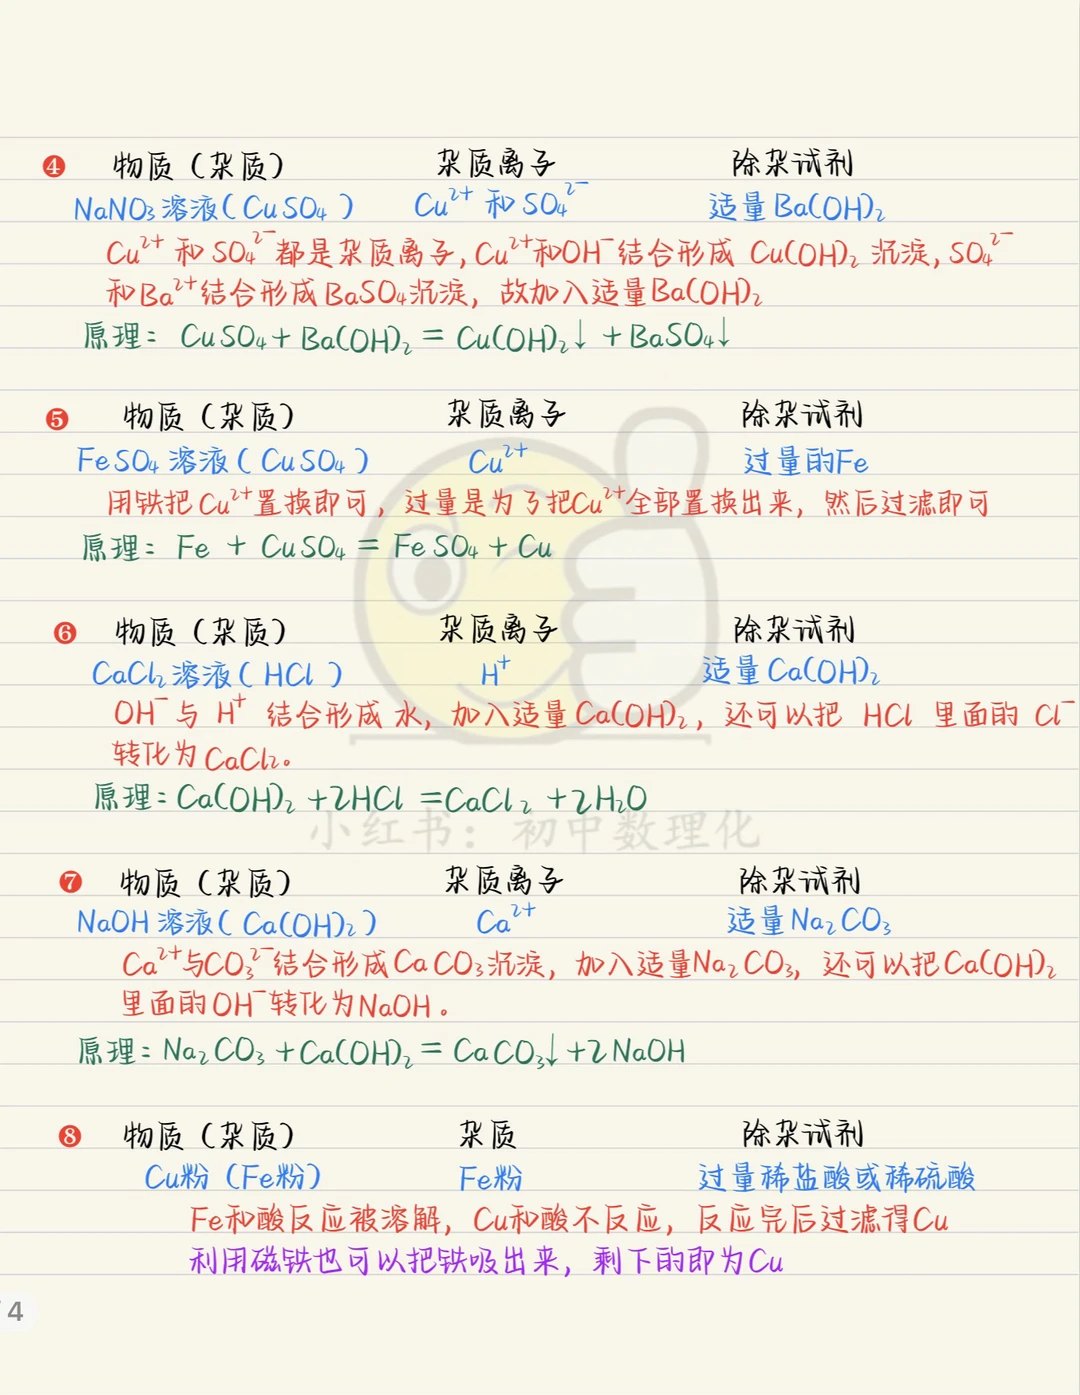 4 物质（杂质） 杂质离子 除杂试剂
NaNO₃溶液（CuSO₄） Cu²⁺和SO₄²⁻ 适量Ba(OH)₂
Cu²⁺和SO₄²⁻都是杂质离子，Cu²⁺和OH⁻结合形成Cu(OH)₂沉淀，SO₄²⁻
和Ba²⁺结合形成BaSO₄沉淀，故加入适量Ba(OH)₂
原理：CuSO₄+Ba(OH)₂=Cu(OH)₂↓+BaSO₄↓
5 物质（杂质） 杂质离子 除杂试剂
FeSO₄溶液（CuSO₄） Cu²⁺ 过量的Fe
用铁把Cu²⁺置换即可，过量是为了把Cu²⁺全部置换出来，然后过滤即可
原理：Fe+CuSO₄=FeSO₄+Cu
6 物质（杂质） 杂质离子 除杂试剂
CaCl₂溶液（HCl） H⁺ 适量Ca(OH)₂
OH⁻与H⁺结合形成水，加入适量Ca(OH)₂，还可以把HCl里面的Cl⁻
转化为CaCl₂。
原理：Ca(OH)₂+2HCl=CaCl₂+2H₂O
小红书：初中数理化
7 物质（杂质） 杂质离子 除杂试剂
NaOH溶液（Ca(OH)₂） Ca²⁺ 适量Na₂CO₃
Ca²⁺与CO₃²⁻结合形成CaCO₃沉淀，加入适量Na₂CO₃，还可以把Ca(OH)₂
里面的OH⁻转化为NaOH。
原理：Na₂CO₃+Ca(OH)₂=CaCO₃↓+2NaOH
8 物质（杂质） 杂质 除杂试剂
Cu粉（Fe粉） Fe粉 过量稀盐酸或稀硫酸
Fe和酸反应被溶解，Cu和酸不反应，反应完后过滤得Cu
利用磁铁也可以把铁吸出来，剩下的即为Cu
4